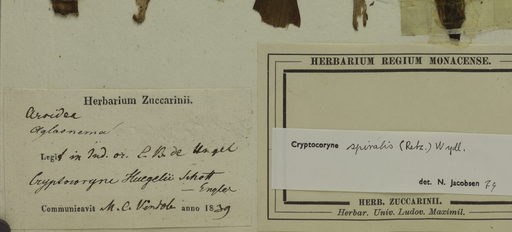 Herbarium Zuccarinii.
Aroidea
Aglaonema
Legit in Ind. or. C. B. de Hügel
Cryptocoryne Huegelii Schott
— Engler
Communicavit anno 1839
HERBARIUM REGIUM MONACENSE.
Cryptocoryne spiralis (Retz.) Wydl.
det. N. Jacobsen 74
HERB. ZUCCARINII.
Herbar. Univ. Ludov. Maximil.